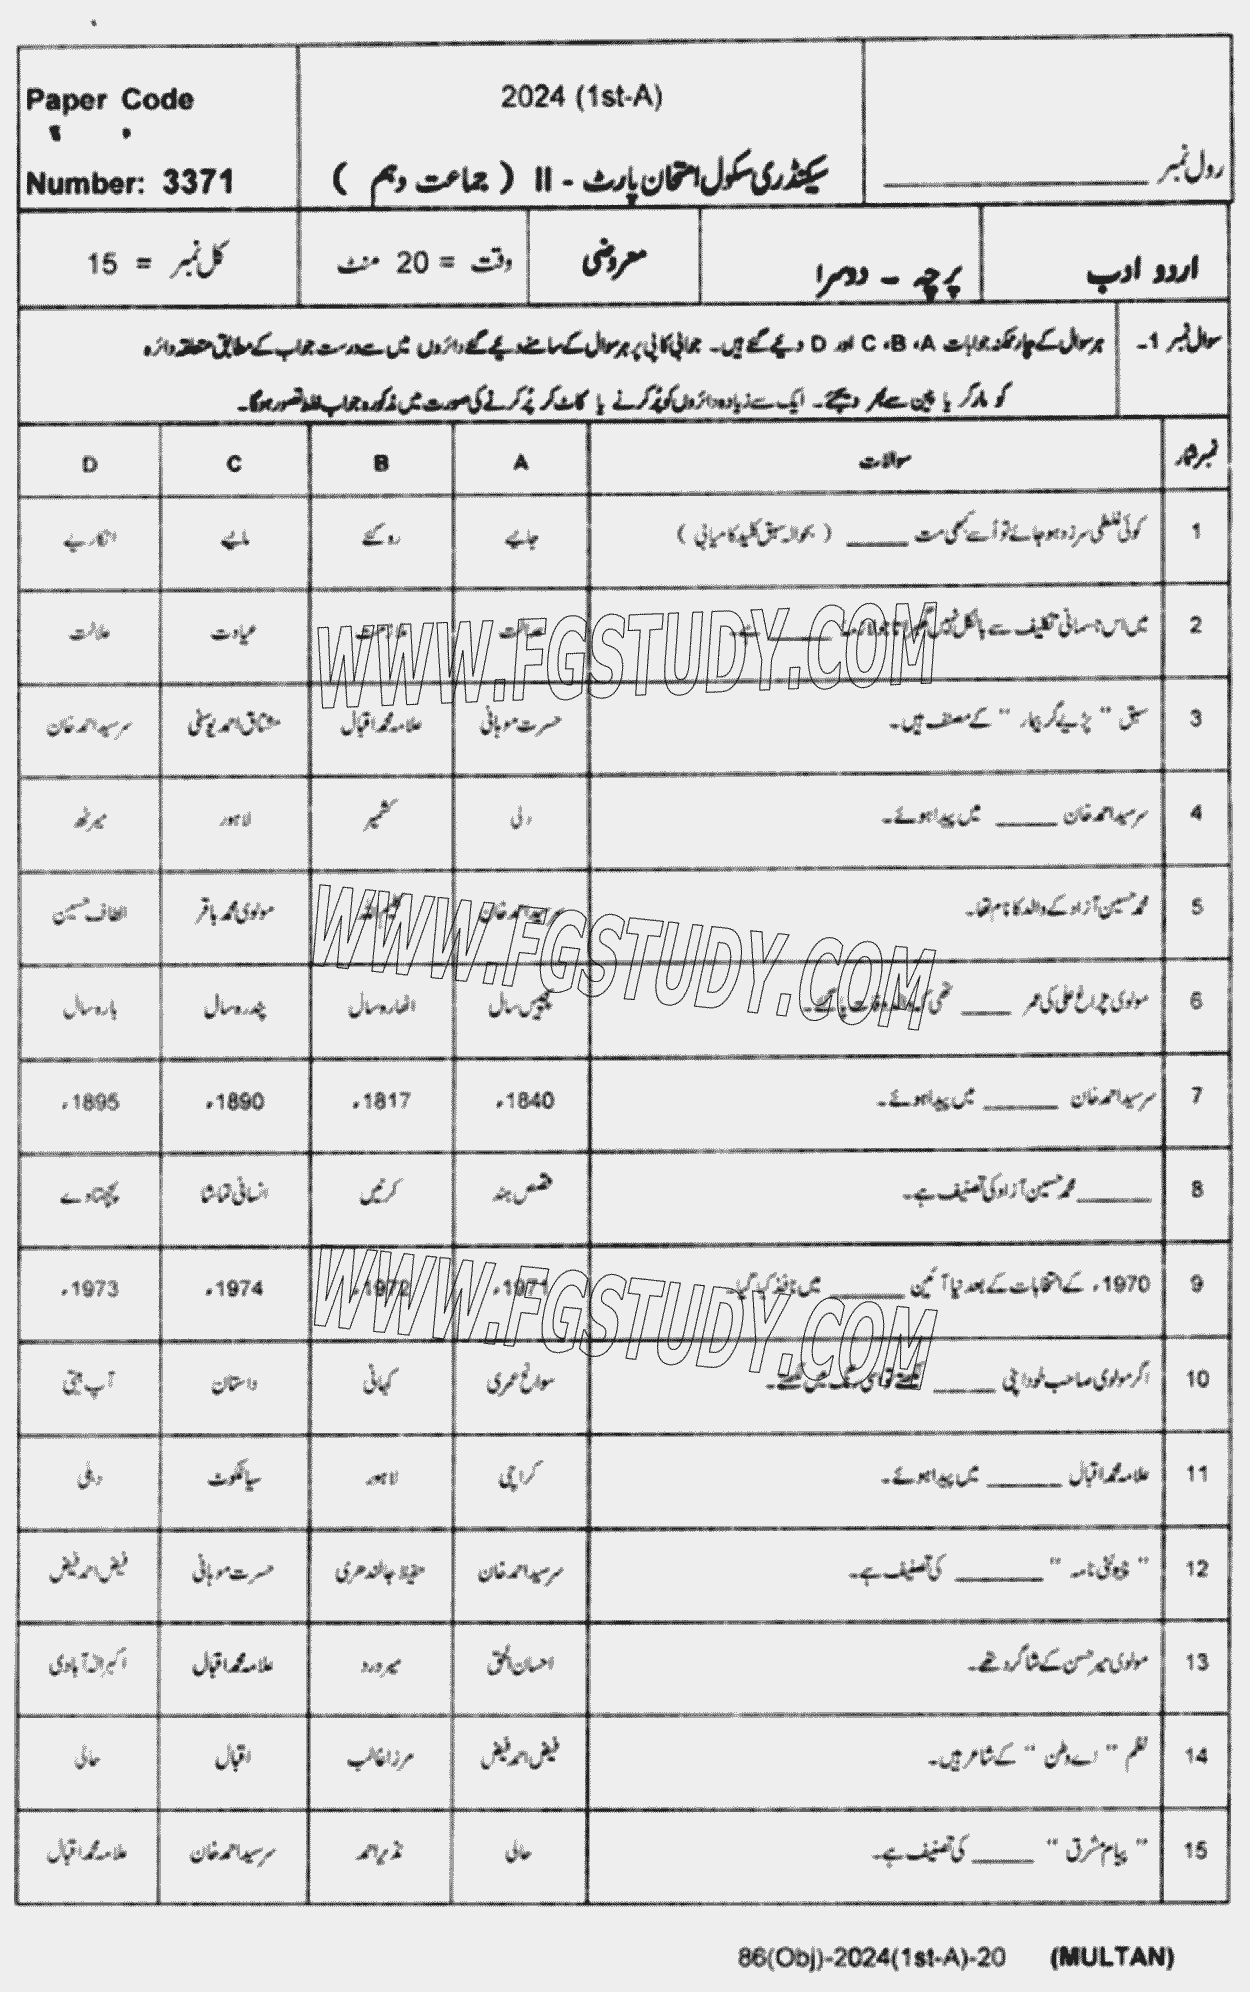 Paper Code
Number: 3371
2024 (1st-A)
سیکنڈری سکول امتحان پارٹ - II ( جماعت دہم )
رول نمبر ________
اردو ادب
پرچہ ـ دوسرا
معروضی
وقت = 20 منٹ
کل نمبر = 15
سوال نمبر 1۔ ہر سوال کے چار ممکنہ جوابات A، B، C اور D دیے گئے ہیں۔ جوابی کاپی پر ہر سوال کے سامنے دیے گئے دائروں میں سے درست جواب کے مطابق متعلقہ دائرہ
کو مارکر یا پین سے بھر دیجئے۔ ایک سے زیادہ دائروں کو پُر کرنے یا کاٹ کر پُر کرنے کی صورت میں مذکورہ جواب غلط تصور ہوگا۔
نمبر شمار سوالات A B C D
1 کوئی غلطی سرزد ہو جائے تو اُسے کبھی مت ____ ( بحوالہ سبق کلید کامیابی ) جایے رو گئے مایے انکار یے
2 میں اس ناسمانی تکلیف سے بالکل نہیں ____ ہے۔ عیادت علالت
3 سبق " پڑیے گر بیمار " کے مصنف ہیں۔ حسرت موہانی علامہ محمد اقبال مشتاق احمد یوسفی سرسید احمد خان
4 سرسید احمد خان ____ میں پیدا ہوئے۔ دلی کشمیر لاہور میرٹھ
5 محمد حسین آزاد کے والد کا نام تھا۔ سرسید احمد خان کلیم اللہ مولوی محمد باقر الطاف حسین
6 مولوی چراغ علی کی عمر ____ تھی کہ والد وفات پا گئے۔ پچیس سال اٹھارہ سال پندرہ سال بارہ سال
7 سرسید احمد خان ____ میں پیدا ہوئے۔ 1840ء 1817ء 1890ء 1895ء
8 ____ محمد حسین آزاد کی تصنیف ہے۔ قصص ہند کرنیں انسانی تماشا پچھتاوے
9 1970ء کے انتخابات کے بعد نیا آئین ____ میں نافذ کیا گیا۔ 1971ء 1972ء 1974ء 1973ء
10 اگر مولوی صاحب خود اپنی ____ لکھتے تو اسی رنگ میں لکھتے۔ سوانح عمری کہانی داستان آپ بیتی
11 علامہ محمد اقبال ____ میں پیدا ہوئے۔ کراچی لاہور سیالکوٹ دہلی
12 " ڈیوٹی نامہ " ____ کی تصنیف ہے۔ سرسید احمد خان حفیظ جالندھری حسرت موہانی فیض احمد فیض
13 مولوی میر حسن کے شاگرد تھے۔ احسان الحق میر درد علامہ محمد اقبال اکبر الہ آبادی
14 نظم " اے وطن " کے شاعر ہیں۔ فیض احمد فیض مرزا غالب اقبال حالی
15 " پیام مشرق " ____ کی تصنیف ہے۔ حالی نذیر احمد سرسید احمد خان علامہ محمد اقبال
WWW.FGSTUDY.COM
WWW.FGSTUDY.COM
WWW.FGSTUDY.COM
86(Obj)-2024(1st-A)-20 (MULTAN)